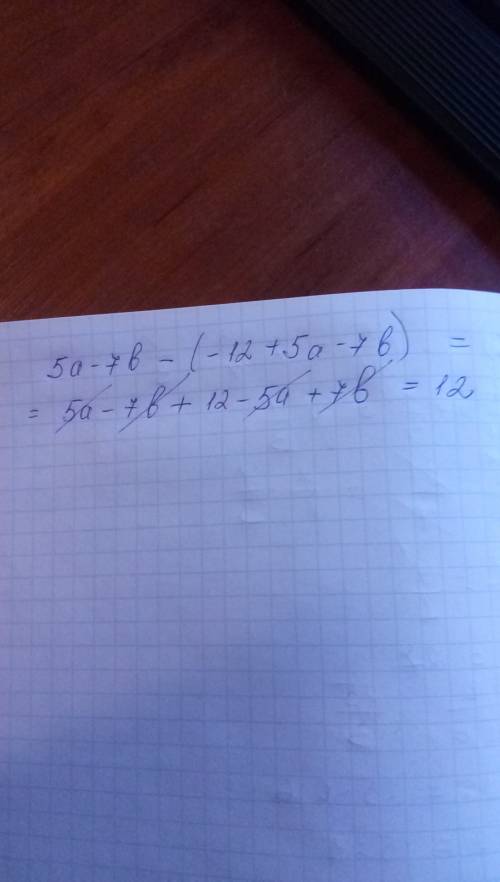 5a - 7b - (-12 + 5a - 7b) =
= 5a - 7b + 12 - 5a + 7b = 12